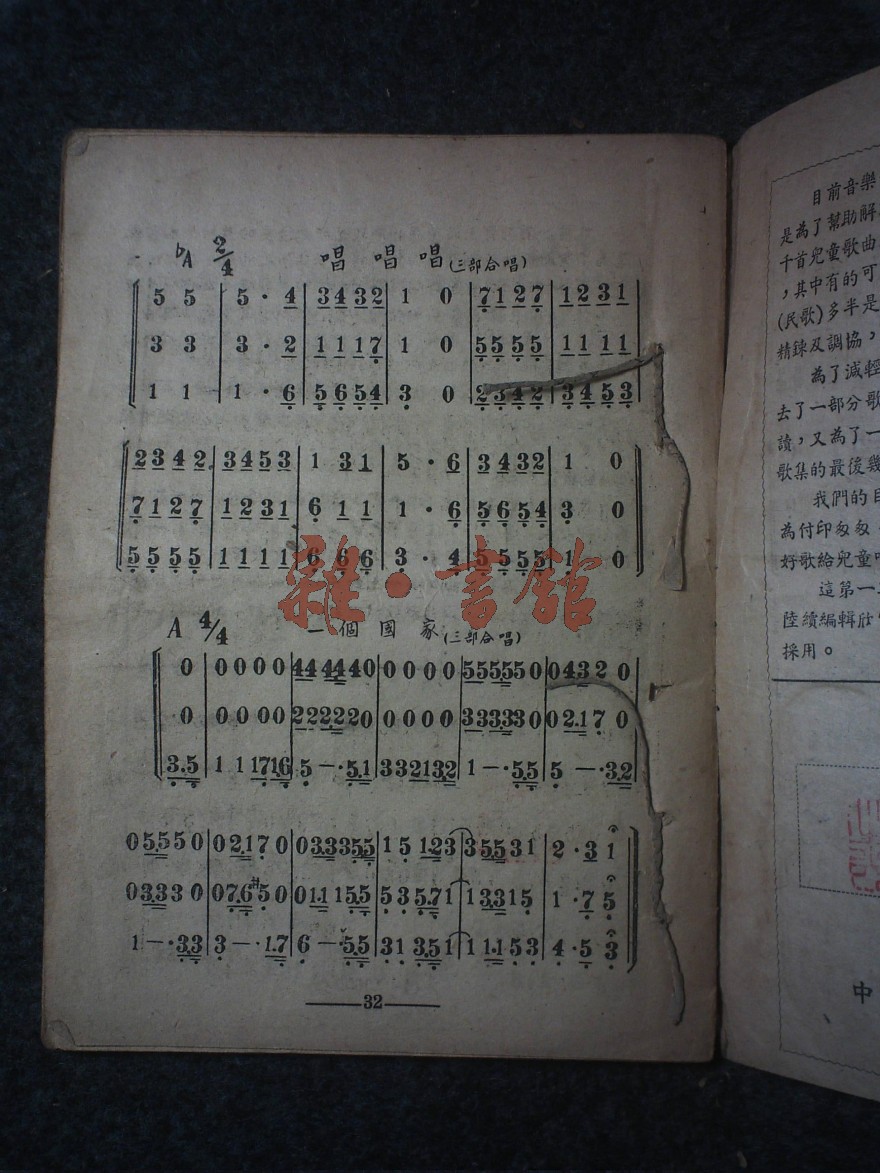 ♭A 2/4 唱 唱 唱 (三部合唱)
5 5 | 5 · 4 | 3432 | 1 0 | 7127 | 1231
3 3 | 3 · 2 | 1117 | 1 0 | 5555 | 1111
1 1 | 1 · 6 | 5654 | 3 0 | 2342 | 3453
2342 | 3453 | 1 31 | 5 · 6 | 3432 | 1 0
7127 | 1231 | 6 11 | 1 · 6 | 5654 | 3 0
5555 | 1111 | 6 66 | 3 · 4 | 5555 | 1 0
雜·書館
A 4/4 一 個 國 家 (三部合唱)
0 | 0 0 0 0 | 44 44 4 0 | 0 0 0 0 | 55 55 5 0 | 0 43 2 0
0 | 0 0 0 0 | 22 22 2 0 | 0 0 0 0 | 33 33 3 0 | 0 2.1 7 0
3.5 | 1 1 17 16 | 5 — · 5.1 | 3 3 21 32 | 1 — · 5.5 | 5 — · 3.2
0 55 5 0 | 0 2.1 7 0 | 0 33 3 55 | 1 5 1.2 3 | 3 55 3 1 | 2 · 3 1
0 33 3 0 | 0 7.6 #5 0 | 0 1.1 1 5.5 | 5 3 5.7 1 | 1 33 1 5 | 1 · 7 5
1 — · 3.3 | 3 — · 1.7 | 6 — · 5.5 | 3 1 3.5 1 | 1 1.1 5 3 | 4 · 5 3
32
目前音樂
是為了幫助解
千首兒童歌曲
，其中有的可
(民歌)多半是
精錬及調協，
為了減輕
去了一部分歌
讀，又為了一
歌集的最後幾
我們的目
為付印匆匆
好歌給兒童
這第一
陸續編輯
採用。
中